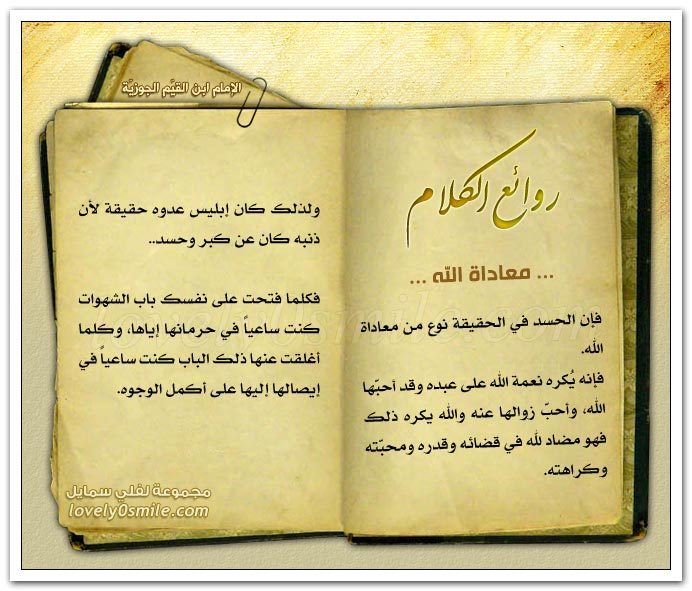 الإمام ابن القيّم الجوزيّة
روائع الكلام
... معاداة الله ...
فإن الحسد في الحقيقة نوع من معاداة
الله.
فإنه يُكره نعمة الله على عبده وقد أحبّها
الله، وأحبّ زوالها عنه والله يكره ذلك
فهو مضاد لله في قضائه وقدره ومحبّته
وكراهته.
ولذلك كان إبليس عدوه حقيقة لأن
ذنبه كان عن كبر وحسد..
فكلما فتحت على نفسك باب الشهوات
كنت ساعياً في حرمانها إياها، وكلما
أغلقت عنها ذلك الباب كنت ساعياً في
إيصالها إليها على أكمل الوجوه.
مجموعة لفلي سمايل
lovely0smile.com
lovely0smile.com